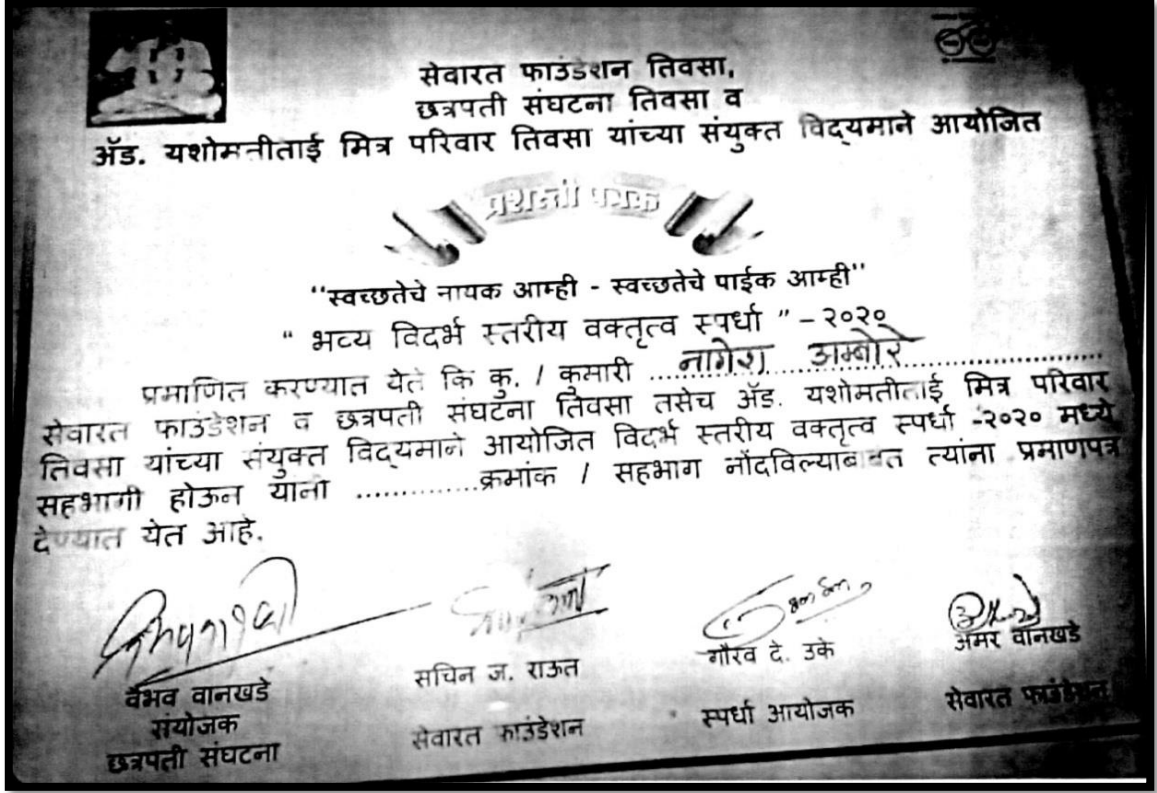 सेवारत फाउंडेशन तिवसा,
छत्रपती संघटना तिवसा व
ॲड. यशोमतीताई मित्र परिवार तिवसा यांच्या संयुक्त विद्यमाने आयोजित
प्रशस्ती पत्रक
"स्वच्छतेचे नायक आम्ही - स्वच्छतेचे पाईक आम्ही"
" भव्य विदर्भ स्तरीय वक्तृत्व स्पर्धा " – २०२०
प्रमाणित करण्यात येते कि कु. / कुमारी ...नागेश अम्बोरे...
सेवारत फाउंडेशन व छत्रपती संघटना तिवसा तसेच ॲड. यशोमतीताई मित्र परिवार
तिवसा यांच्या संयुक्त विद्यमाने आयोजित विदर्भ स्तरीय वक्तृत्व स्पर्धा -२०२० मध्ये
सहभागी होऊन यांनी .............क्रमांक / सहभाग नोंदविल्याबाबत त्यांना प्रमाणपत्र
देण्यात येत आहे.
वैभव वानखडे
संयोजक
छत्रपती संघटना
सचिन ज. राऊत
सेवारत फाउंडेशन
गौरव दे. उके
स्पर्धा आयोजक
अमर वानखडे
सेवारत फाउंडेशन